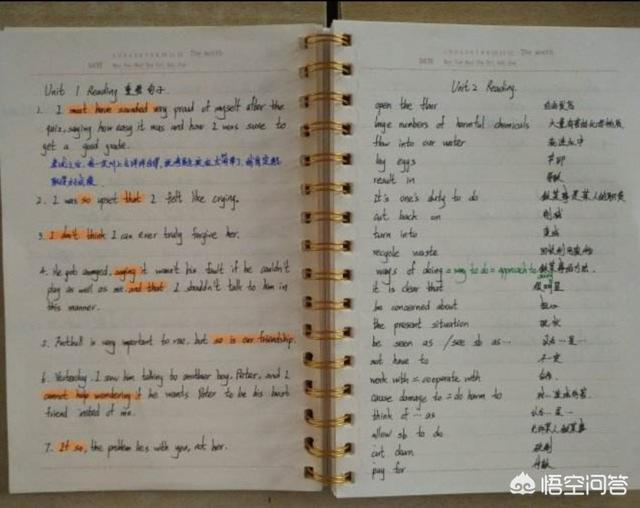 The month
DATE
Mon Tue Wed Thu Fri Sat Sun
Unit 1 Reading 重要句子
1. I must have sounded very proud of myself after the
quiz, saying how easy it was and how I was sure to
get a good grade.
2. I was so upset that I felt like crying.
3. I don't think I can ever truly forgive her.
4. He got annoyed, saying it wasn't his fault if he couldn't
play as well as me and that I shouldn't talk to him in
this manner.
5. Football is very important to me, but so is our friendship.
6. Yesterday, I saw him talking to another boy, Peter, and I
cannot help wondering if he wants Peter to be his best
friend instead of me.
7. If so, the problem lies with you, not her.
The month
DATE
Mon Tue Wed Thu Fri Sat Sun
Unit 2 Reading.
open the floor 自由发言
large numbers of harmful chemicals 大量有害的化学物质
flow into our water
lay eggs 产卵
result in 导致
It's one's duty to do 做某事是某人的职责
cut back on 削减
turn into 变成
recycle waste
ways of doing = way to do = approach to doing 做某事的方法
it is clear that 很明显
be concerned about 担心
the present situation 现状
be seen as /see sb as... 认为...是...
not have to 不必
work with = cooperate with 合作
cause damage to = do harm to 对...造成伤害
think of ... as 认为...是...
allow sb to do 允许某人做某事
cut down 砍倒
pay for
悟空问答